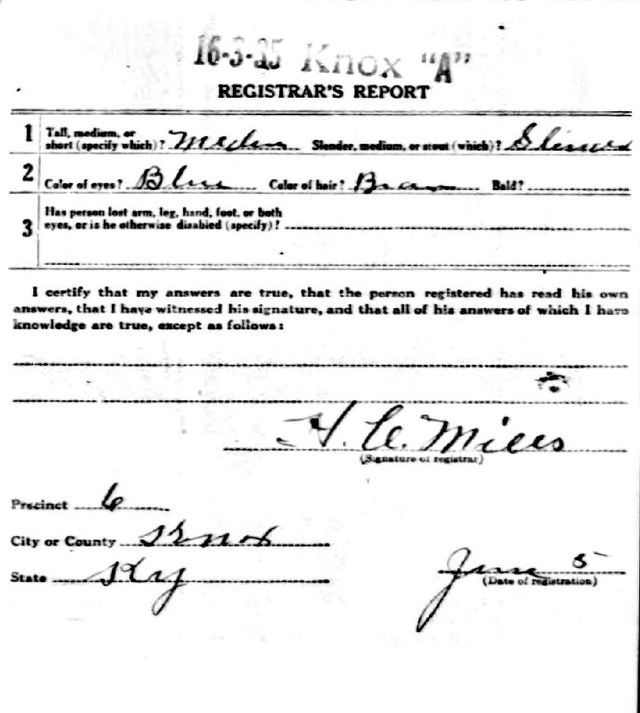 16-3-35 Knox "A"
REGISTRAR'S REPORT
1 Tall, medium, or short (specify which)? Medium Slender, medium, or stout (which)? Slender
2 Color of eyes? Blue Color of hair? Brown Bald?
3 Has person lost arm, leg, hand, foot, or both eyes, or is he otherwise disabled (specify)?
I certify that my answers are true, that the person registered has read his own
answers, that I have witnessed his signature, and that all of his answers of which I have
knowledge are true, except as follows:
H. C. Mills
(Signature of registrar)
Precinct 6
City or County Knox
State Ky
June 5
(Date of registration)